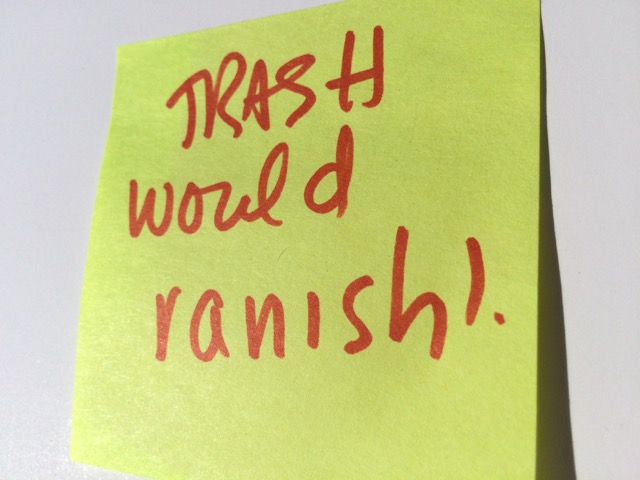 TRASH
would
ranish!